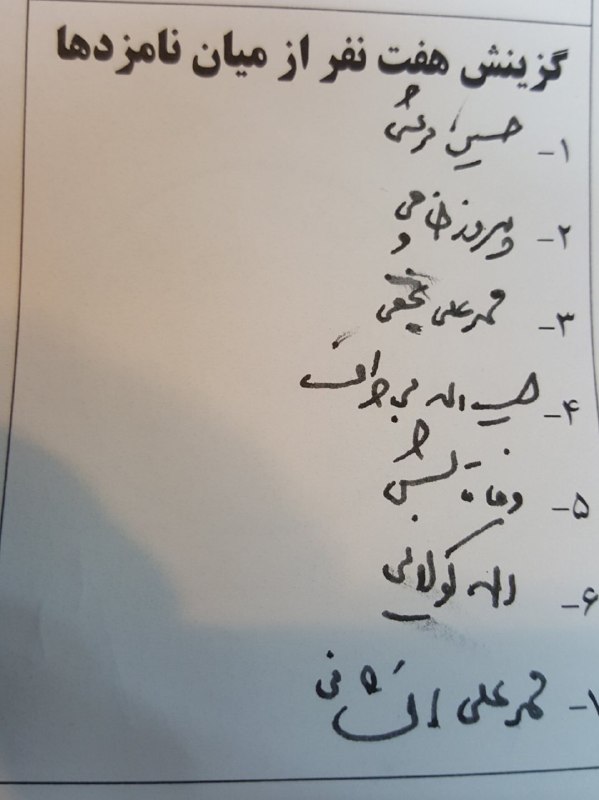 گزینش هفت نفر از میان نامزدها
۱- حسین مرعشی
۲- پیروز حناچی
۳- محمدعلی نجفی
۴- حبیب اله بی طرف
۵- وفا تابش
۶- الهه کولائی
۷- محمدعلی افشانی